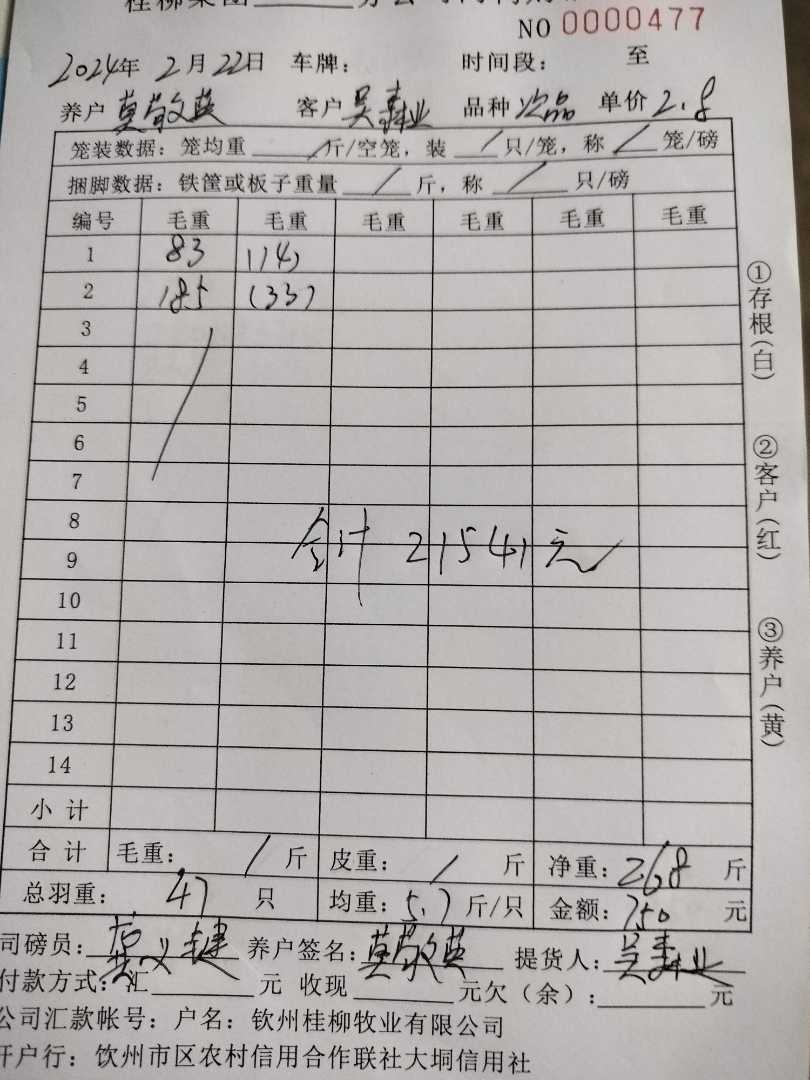 桂柳集团
NO 0000477
2024年 2月 22日 车牌： 时间段： 至
养户 莫敬英 客户 吴寿业 品种 次品 单价 2.8
笼装数据：笼均重 / 斤/空笼，装 / 只/笼，称 / 笼/磅
捆脚数据：铁筐或板子重量 / 斤，称 / 只/磅
编号 毛重 毛重 毛重 毛重 毛重 毛重
1 83 (14)
2 185 (33)
3
4
5
6
7
8
合计 21541元
9
10
11
12
13
14
小计
合计 毛重： / 斤 皮重： / 斤 净重：268 斤
总羽重： 47 只 均重：5.7 斤/只 金额：750 元
司磅员： 养户签名：莫敬英 提货人：吴寿业
付款方式：汇 元 收现 元欠（余）： 元
公司汇款帐号：户名：钦州桂柳牧业有限公司
开户行：钦州市区农村信用合作联社大垌信用社
①存根（白） ②客户（红） ③养户（黄）